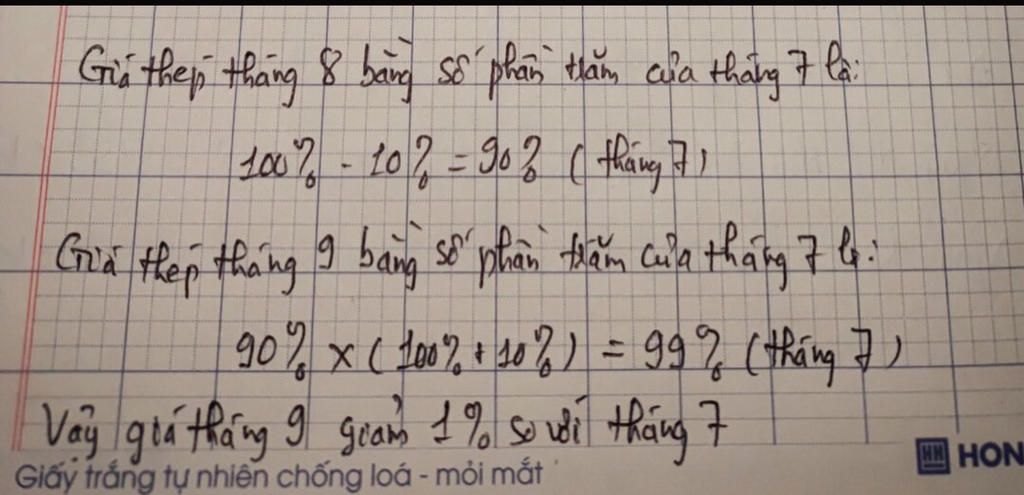 Giá thép tháng 8 bằng số phần trăm của tháng 7 là:
100% - 10% = 90% (tháng 7)
Giá thép tháng 9 bằng số phần trăm của tháng 7 là:
90% x (100% + 10%) = 99% (tháng 7)
Vậy giá tháng 9 giảm 1% so với tháng 7
Giấy trắng tự nhiên chống loá - mỏi mắt
HH HON